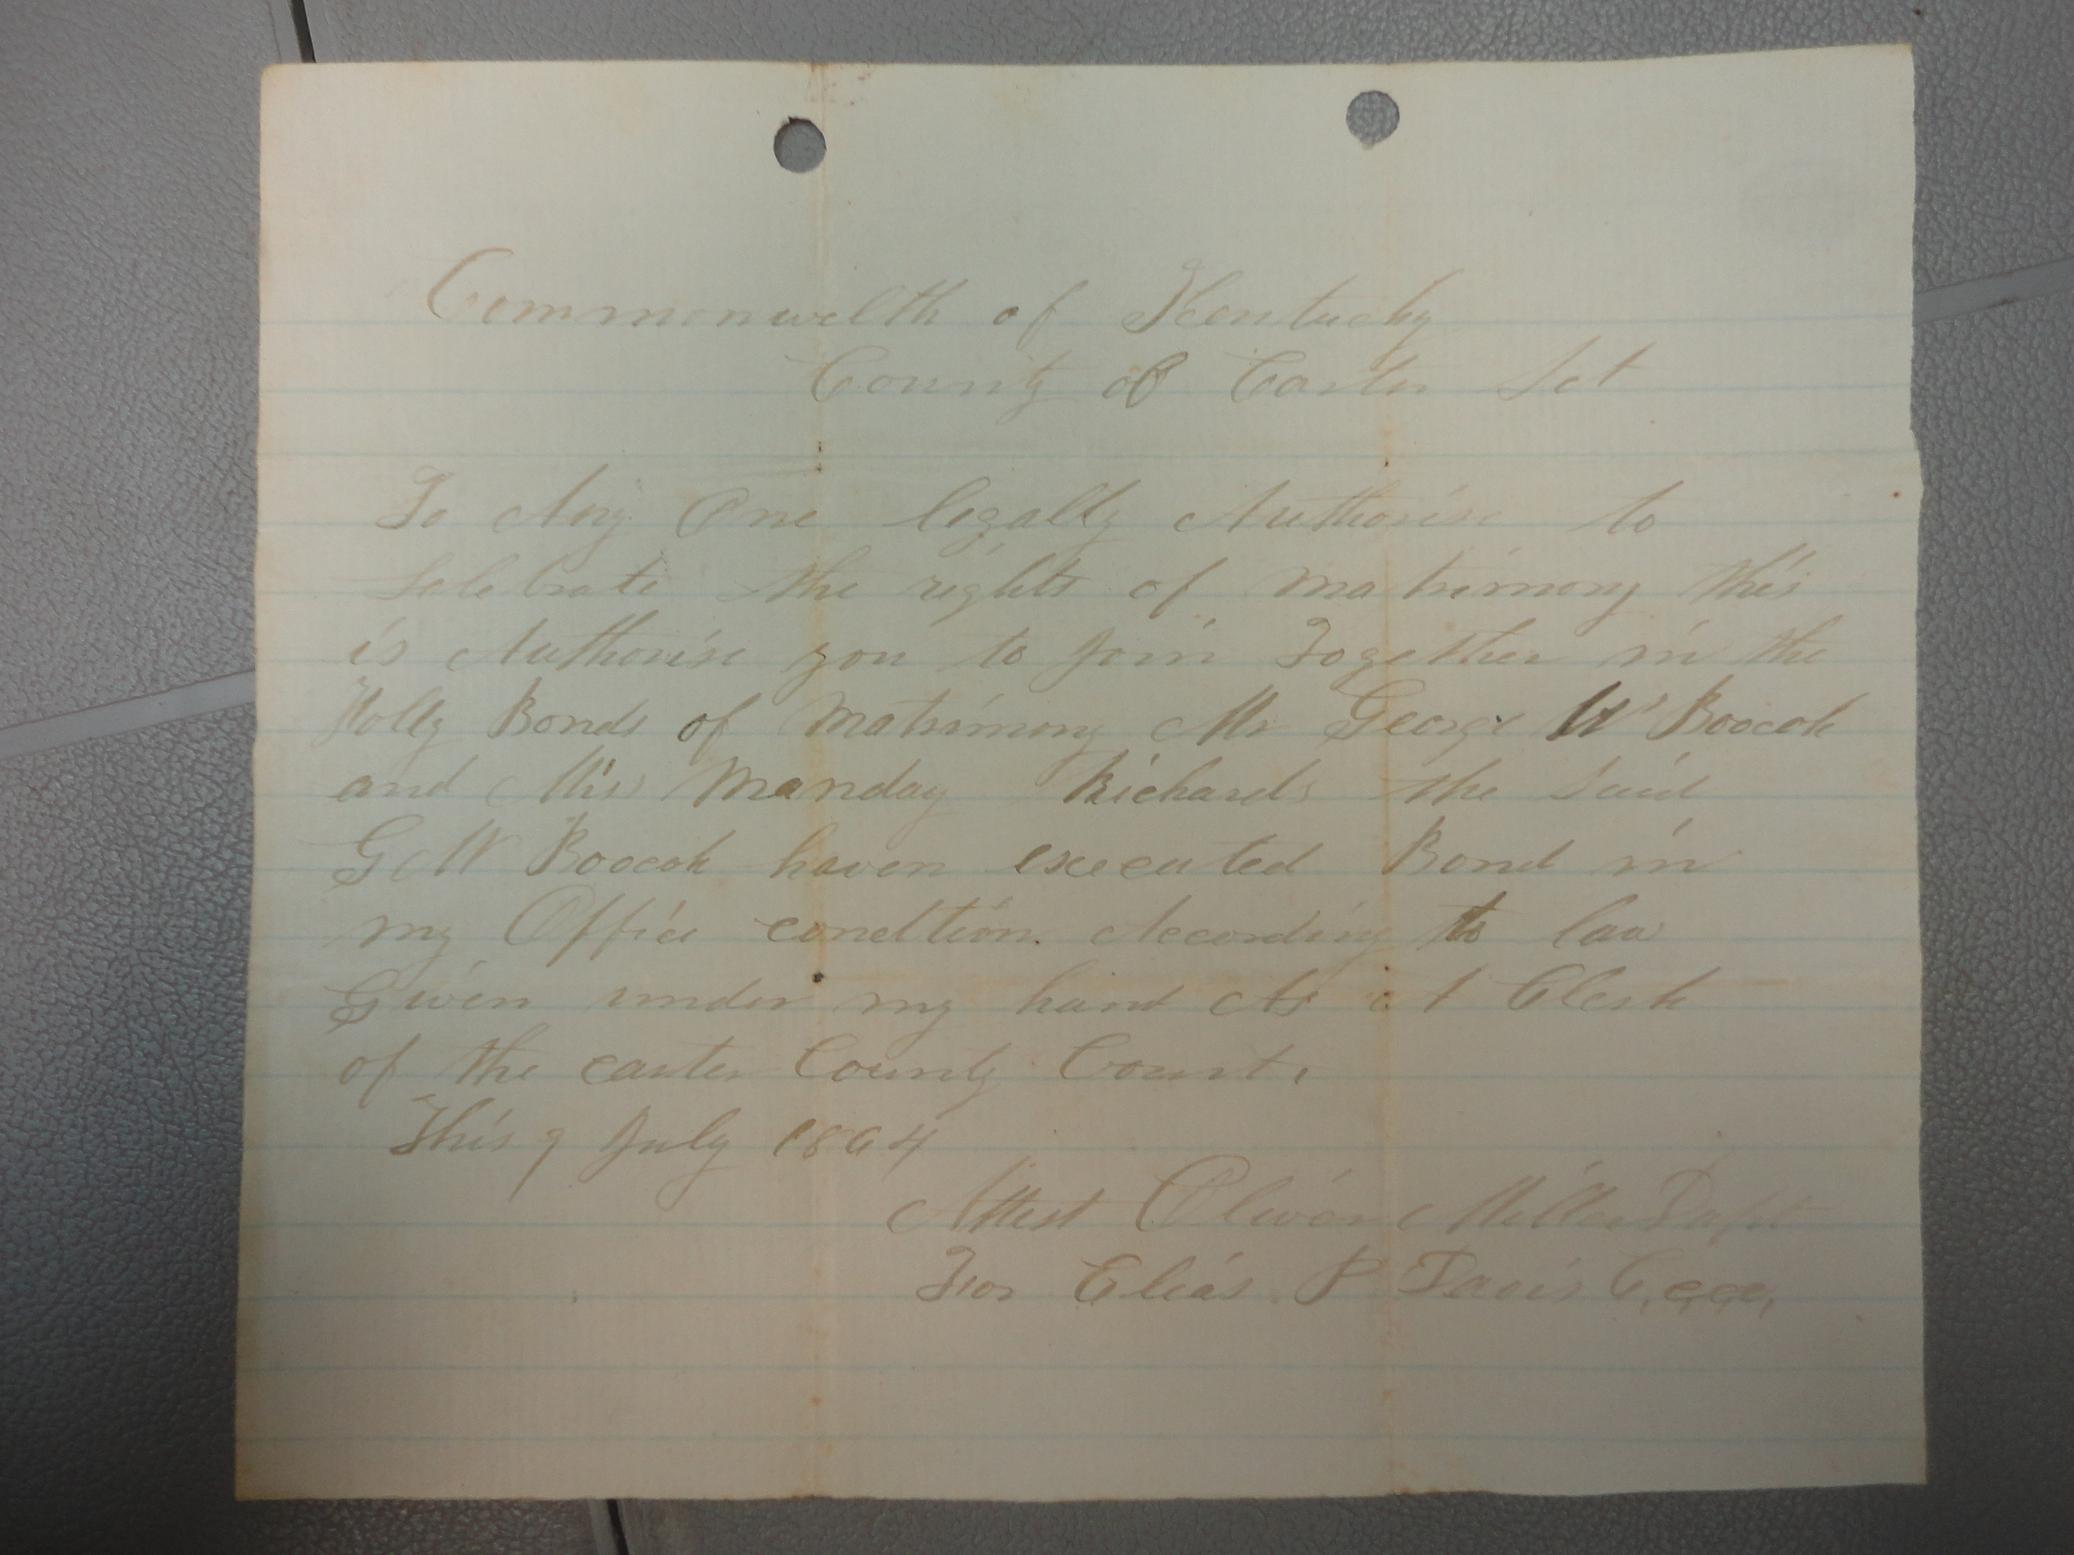 Commonwelth of Kentucky
County of Carter Sct
To Any One legally Authorise to
Selebrate the rights of matrimony this
is Authorise you to join Together in the
Holly Bonds of Matrimony Mr George W Boocok
and Miss Manday Richards the Said
G W Boocok haven executed Bond in
my Office condition According to law
Given under my hand As Clerk
of the carter County Court.
This 9 July 1864
Attest Oliver Miller Dept
For Elias P Davis C,c,c,c,